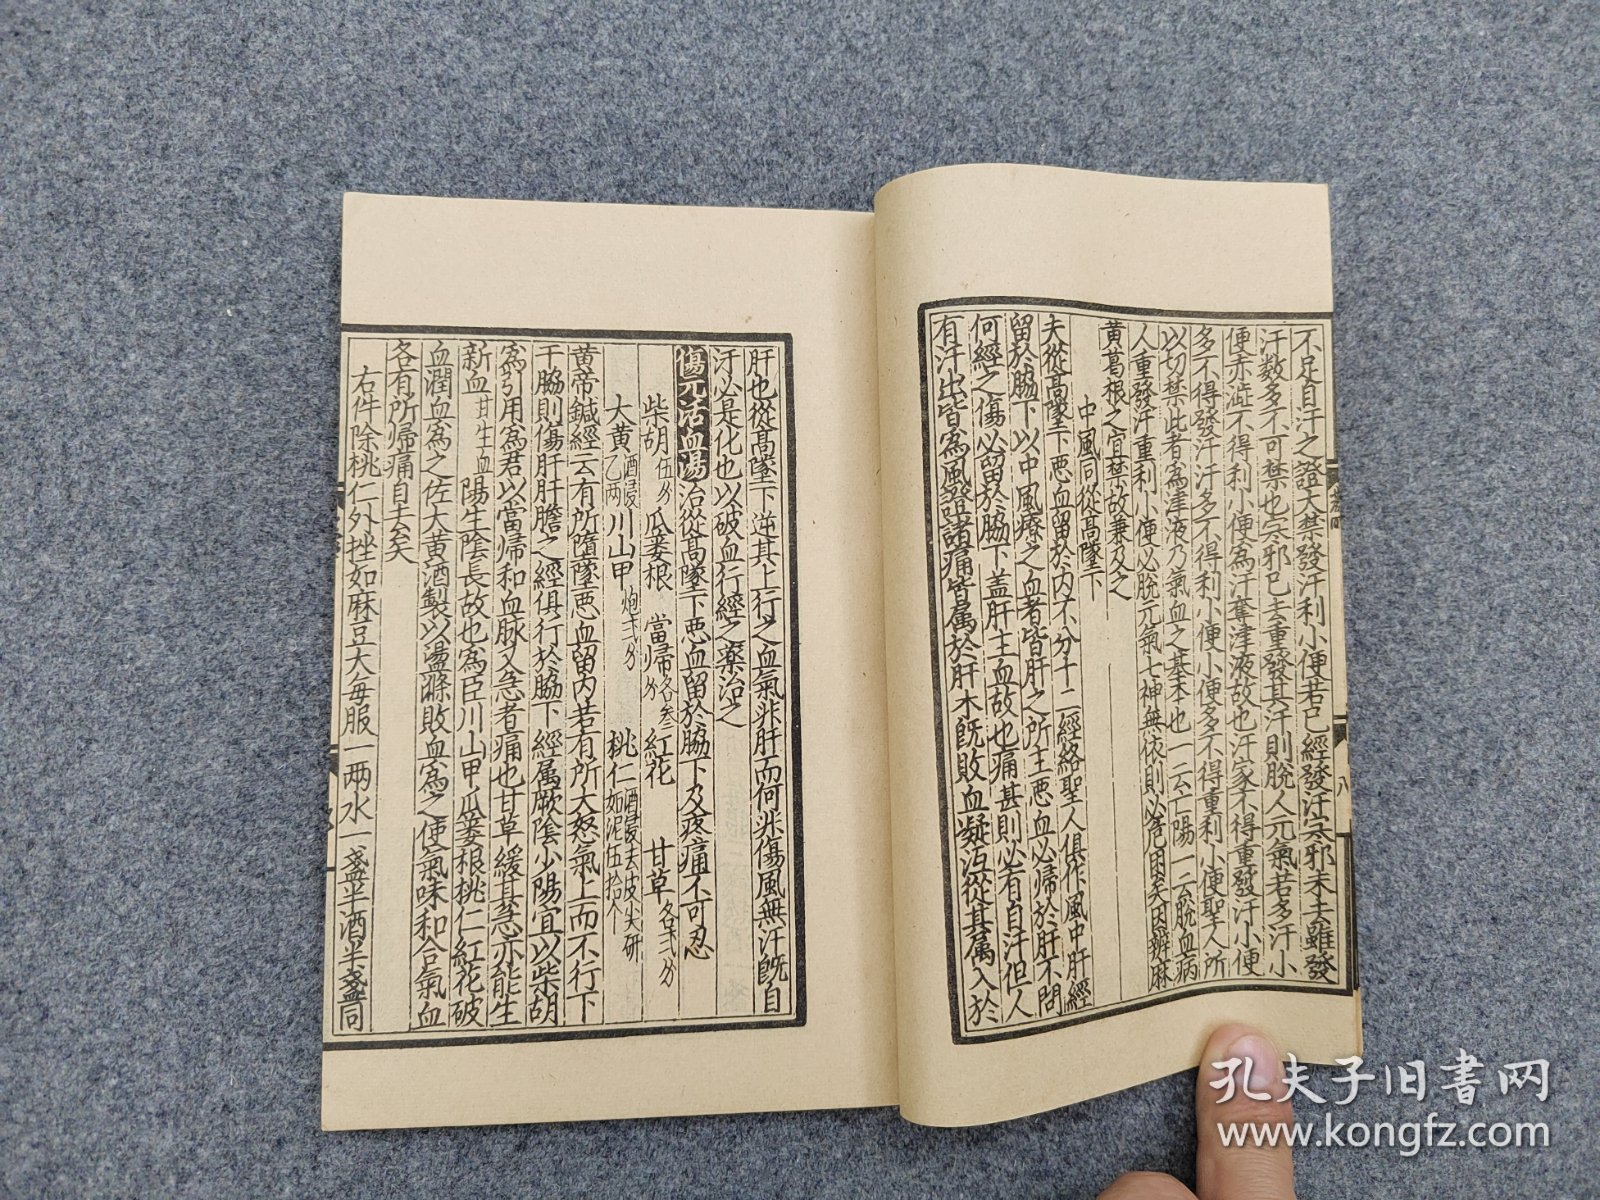 不足自汗之證大禁發汗利小便若已經發汗寒邪未去雖發
汗數多不可禁也寒邪已去重發其汗則脫人元氣若多汗小
便赤澁不得利小便爲汗奪津液故也汗家不得重發汗小便
多不得發汗汗多不得利小便小便多不得重利小便聖人所
以切禁此者爲津液乃氣血之基本也一云亡陽一云脫血病
人重發汗重利小便必脫元氣七神無依則必危困矣因辨麻
黄葛根之宜禁故兼及之
中風同從髙墜下
夫從髙墜下惡血留於内不分十二經絡聖人俱作風中肝經
留於脇下以中風療之血者皆肝之所主惡血必歸於肝不問
何經之傷必留於脇下盖肝主血故也痛甚則必有自汗但人
有汗出皆爲風證諸痛皆属於肝木旣敗血凝沍從其属入於
八
肝也從髙墜下逆其上行之血氣非肝而何非傷風無汗旣自
汗必是化也以破血行經之藥治之
傷元活血湯治從髙墜下惡血留於脇下及疼痛不可忍
柴胡伍分 瓜蔞根 當歸各叁分 紅花 甘草各弍分
大黄酒浸乙两 川山甲炮弍分 桃仁酒浸去皮尖研如泥伍拾个
黄帝鍼經云有所墮墜惡血留内若有所大怒氣上而不行下
于脇則傷肝肝膽之經俱行於脇下經属厥隂少陽宜以柴胡
爲引用爲君以當歸和血脉又急者痛也甘草緩其急亦能生
新血甘生血陽生隂長故也爲臣川山甲瓜蔞根桃仁紅花破
血潤血爲之佐大黄酒製以盪滌敗血爲之使氣味和合氣血
各有所歸痛自去矣
右件除桃仁外挫如麻豆大每服一兩水一盞半酒半盞同
孔夫子旧書网
www.kongfz.com